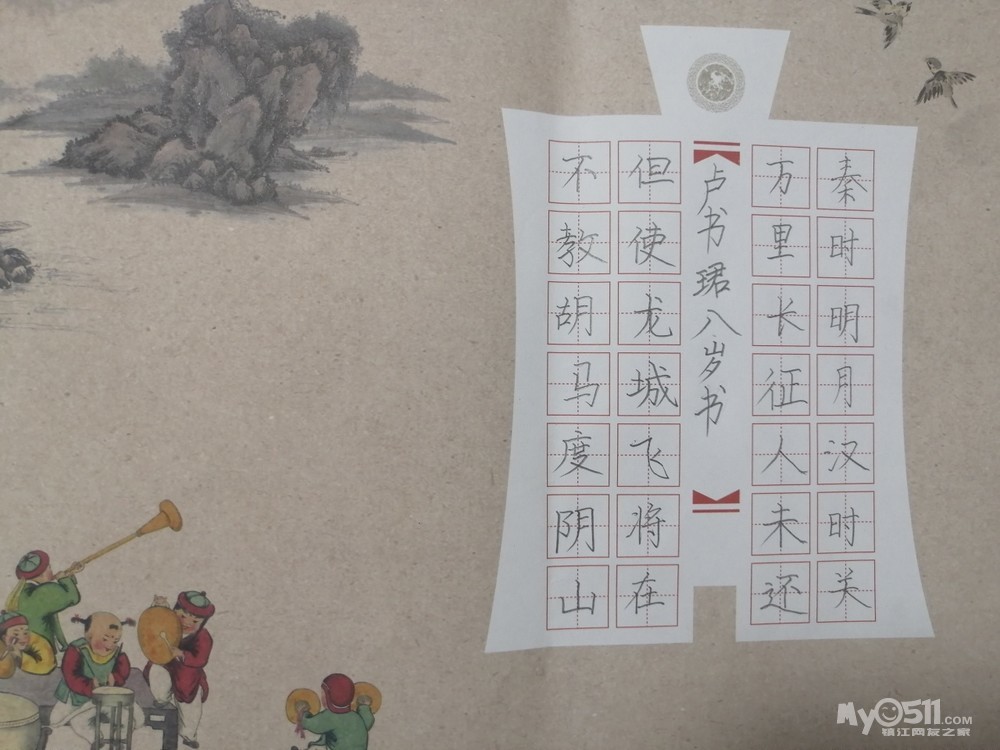 秦时明月汉时关
万里长征人未还
卢书珺八岁书
但使龙城飞将在
不教胡马度阴山
My0511.COM
镇江网友之家